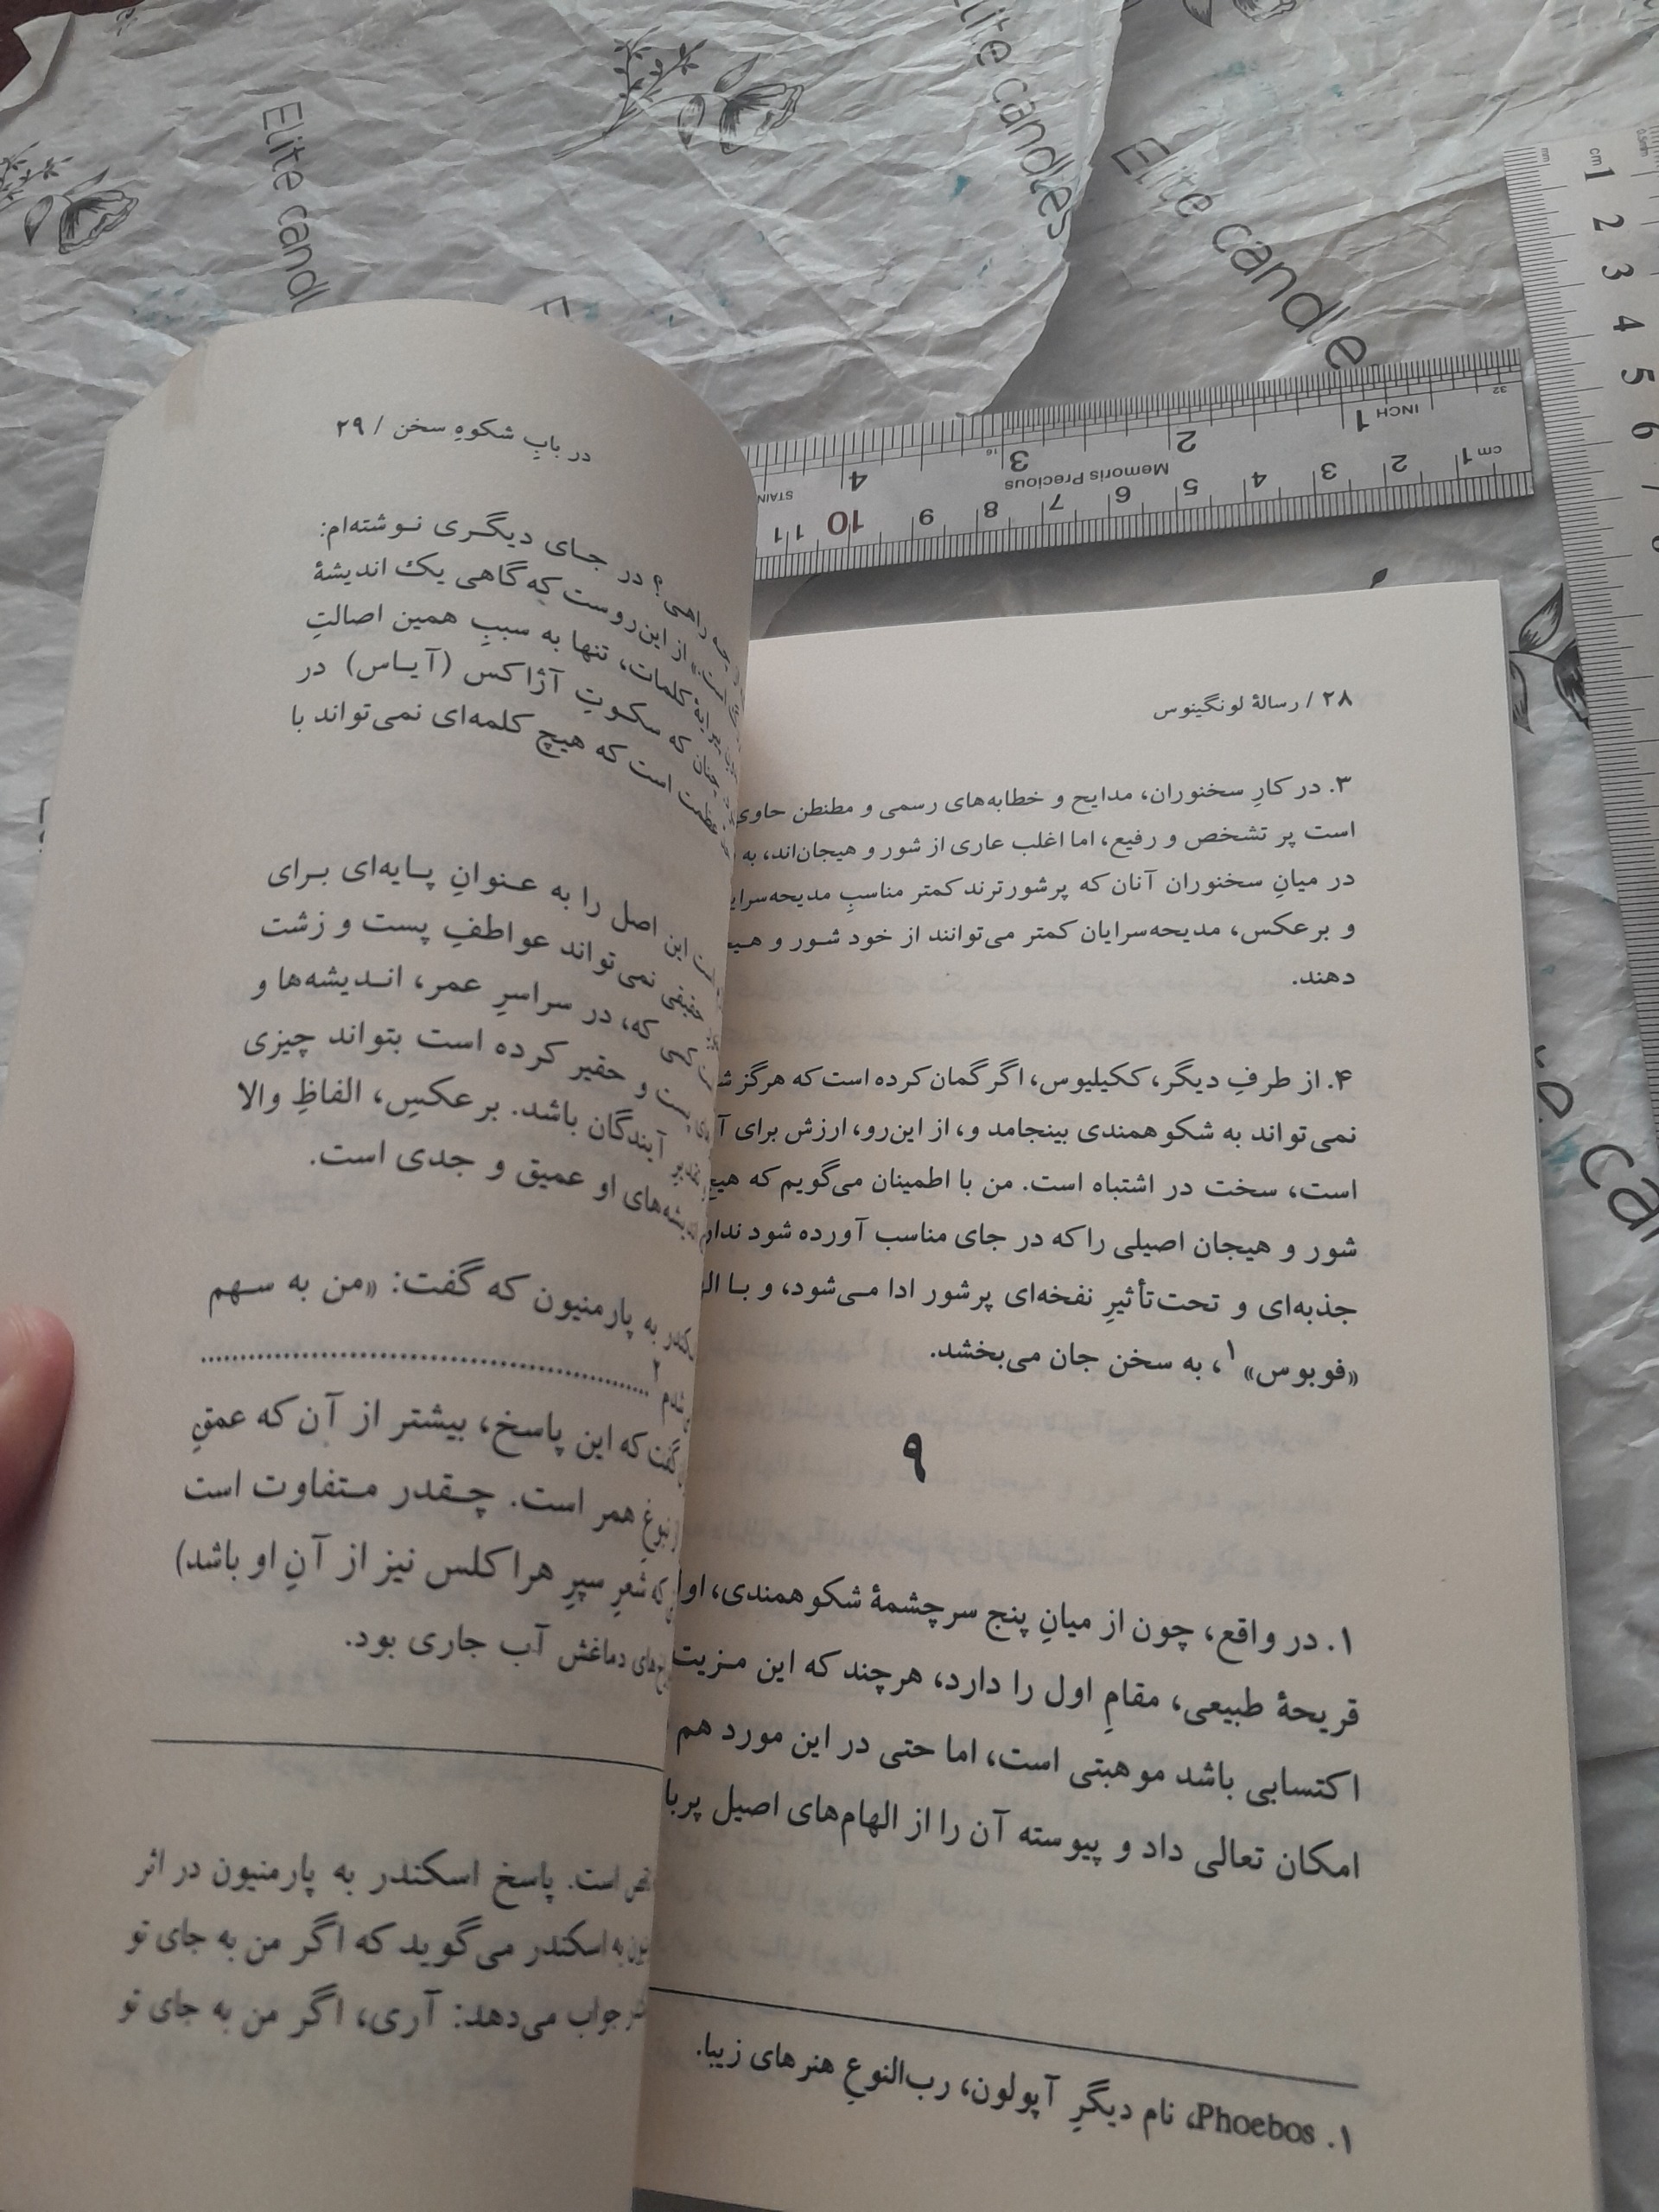 ۲۸ / رسالهٔ لونگینوس
۳. در کارِ سخنوران، مدایح و خطابه‌های رسمی و مطنطن حاوی
است پر تشخص و رفیع، اما اغلب عاری از شور و هیجان‌اند، به
در میانِ سخنوران آنان که پرشورترند کمتر مناسبِ
و برعکس، مدیحه‌سرایان کمتر می‌توانند از خود شور و
دهند.
۴. از طرفِ دیگر، ککیلیوس، اگر گمان کرده است که هرگز
نمی‌تواند به شکوهمندی بینجامد و، از این‌رو، ارزش برای
است، سخت در اشتباه است. من با اطمینان می‌گویم که
شور و هیجان اصیلی را که در جای مناسب آورده شود
جذبه‌ای و تحت‌تأثیرِ نفخه‌ای پرشور ادا می‌شود، و با
«فوبوس»۱، به سخن جان می‌بخشد.
۹
۱. در واقع، چون از میانِ پنج سرچشمهٔ شکوهمندی،
قریحهٔ طبیعی، مقامِ اول را دارد، هرچند که این مزیت
اکتسابی باشد موهبتی است، اما حتی در این مورد هم
امکان تعالی داد و پیوسته آن را از الهام‌های اصیل
۱. Phoebos، نام دیگرِ آپولون، رب‌النوعِ هنرهای زیبا.
در بابِ شکوهِ سخن / ۲۹
چه راهی؟ در جای دیگری نوشته‌ام:
است.» از این‌روست که گاهی یک اندیشهٔ
کلمات، تنها به سببِ همین اصالتِ
چنان که سکوتِ آژاکس (آیاس) در
عظمت است که هیچ کلمه‌ای نمی‌تواند با
این اصل را به عنوانِ پایه‌ای برای
حقیقی نمی‌تواند عواطفِ پست و زشت
کسی که، در سراسرِ عمر، اندیشه‌ها و
پست و حقیر کرده است بتواند چیزی
آیندگان باشد. برعکسِ، الفاظِ والا
او عمیق و جدی است.
به پارمنیون که گفت: «من به سهم
شدم ۲ ........................................
گفت که این پاسخ، بیشتر از آن که عمقِ
نبوغِ همر است. چقدر متفاوت است
که شعرِ سپرِ هراکلس نیز از آنِ او باشد)
دماغش آب جاری بود.
است. پاسخ اسکندر به پارمنیون در اثر
به اسکندر می‌گوید که اگر من به جای تو
جواب می‌دهد: آری، اگر من به جای تو
Elite candles
Elite candles
Elite candle
Elite candl
INCH 1 2 3 4
32
16
Memoris Precious
STAIN
cm 1 2 3 4 5 6 7 8 9 10 11
mm
0.5mm
cm 1 2 3 4 5 6 7